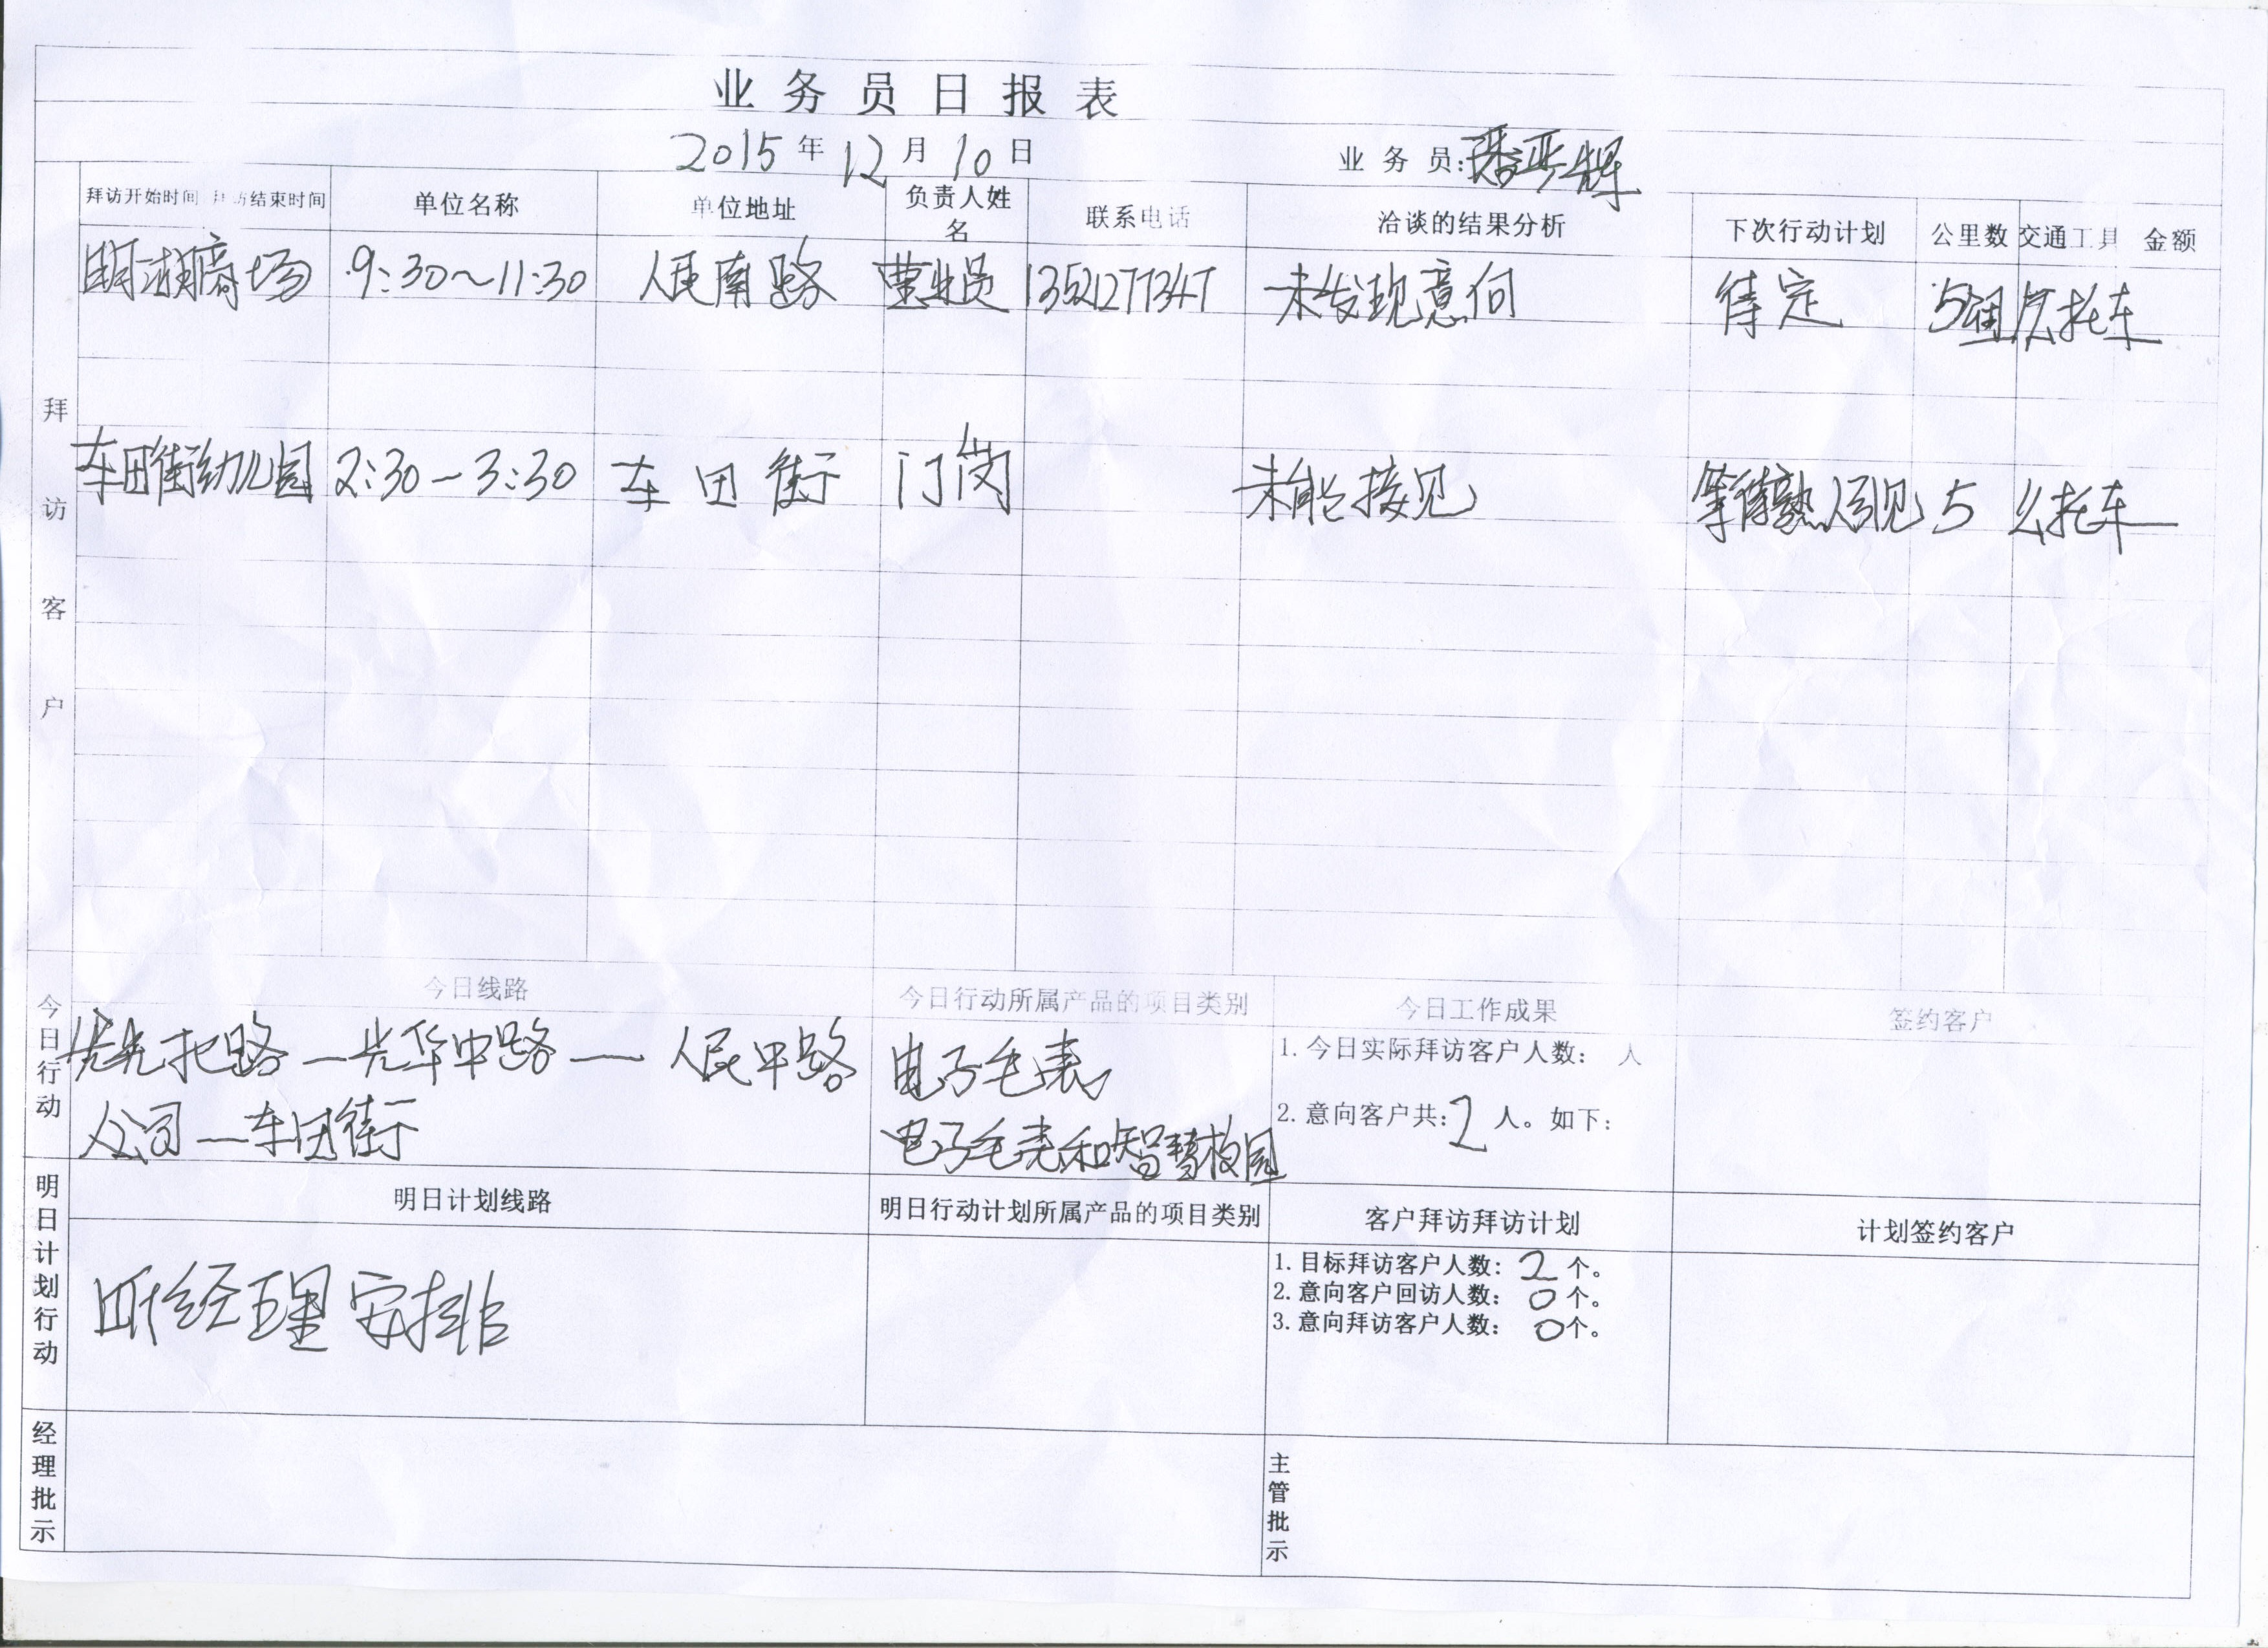 业务员日报表
2015年12月10日 业务员:潘亚辉
拜访开始时间 拜访结束时间 单位名称 单位地址 负责人姓名 联系电话 洽谈的结果分析 下次行动计划 公里数 交通工具 金额
拜访客户
明湖商场 9:30~11:30 人民南路 营业员 1352127734T 未发现意向 待定 5 托车
车田街幼儿园 2:30-3:30 车田街 门岗 未能接见 等待熟人引见 5 托车
今日行动
今日线路 今日行动所属产品的项目类别 今日工作成果 签约客户
路—光华中路—人民中路 电子毛表 1.今日实际拜访客户人数: 人
公司—车田街 电子毛表和智慧校园 2.意向客户共:2人。如下:
明日计划行动
明日计划线路 明日行动计划所属产品的项目类别 客户拜访拜访计划 计划签约客户
听经理安排
1.目标拜访客户人数: 2个。
2.意向客户回访人数: 0个。
3.意向拜访客户人数: 0个。
经理批示 主管批示